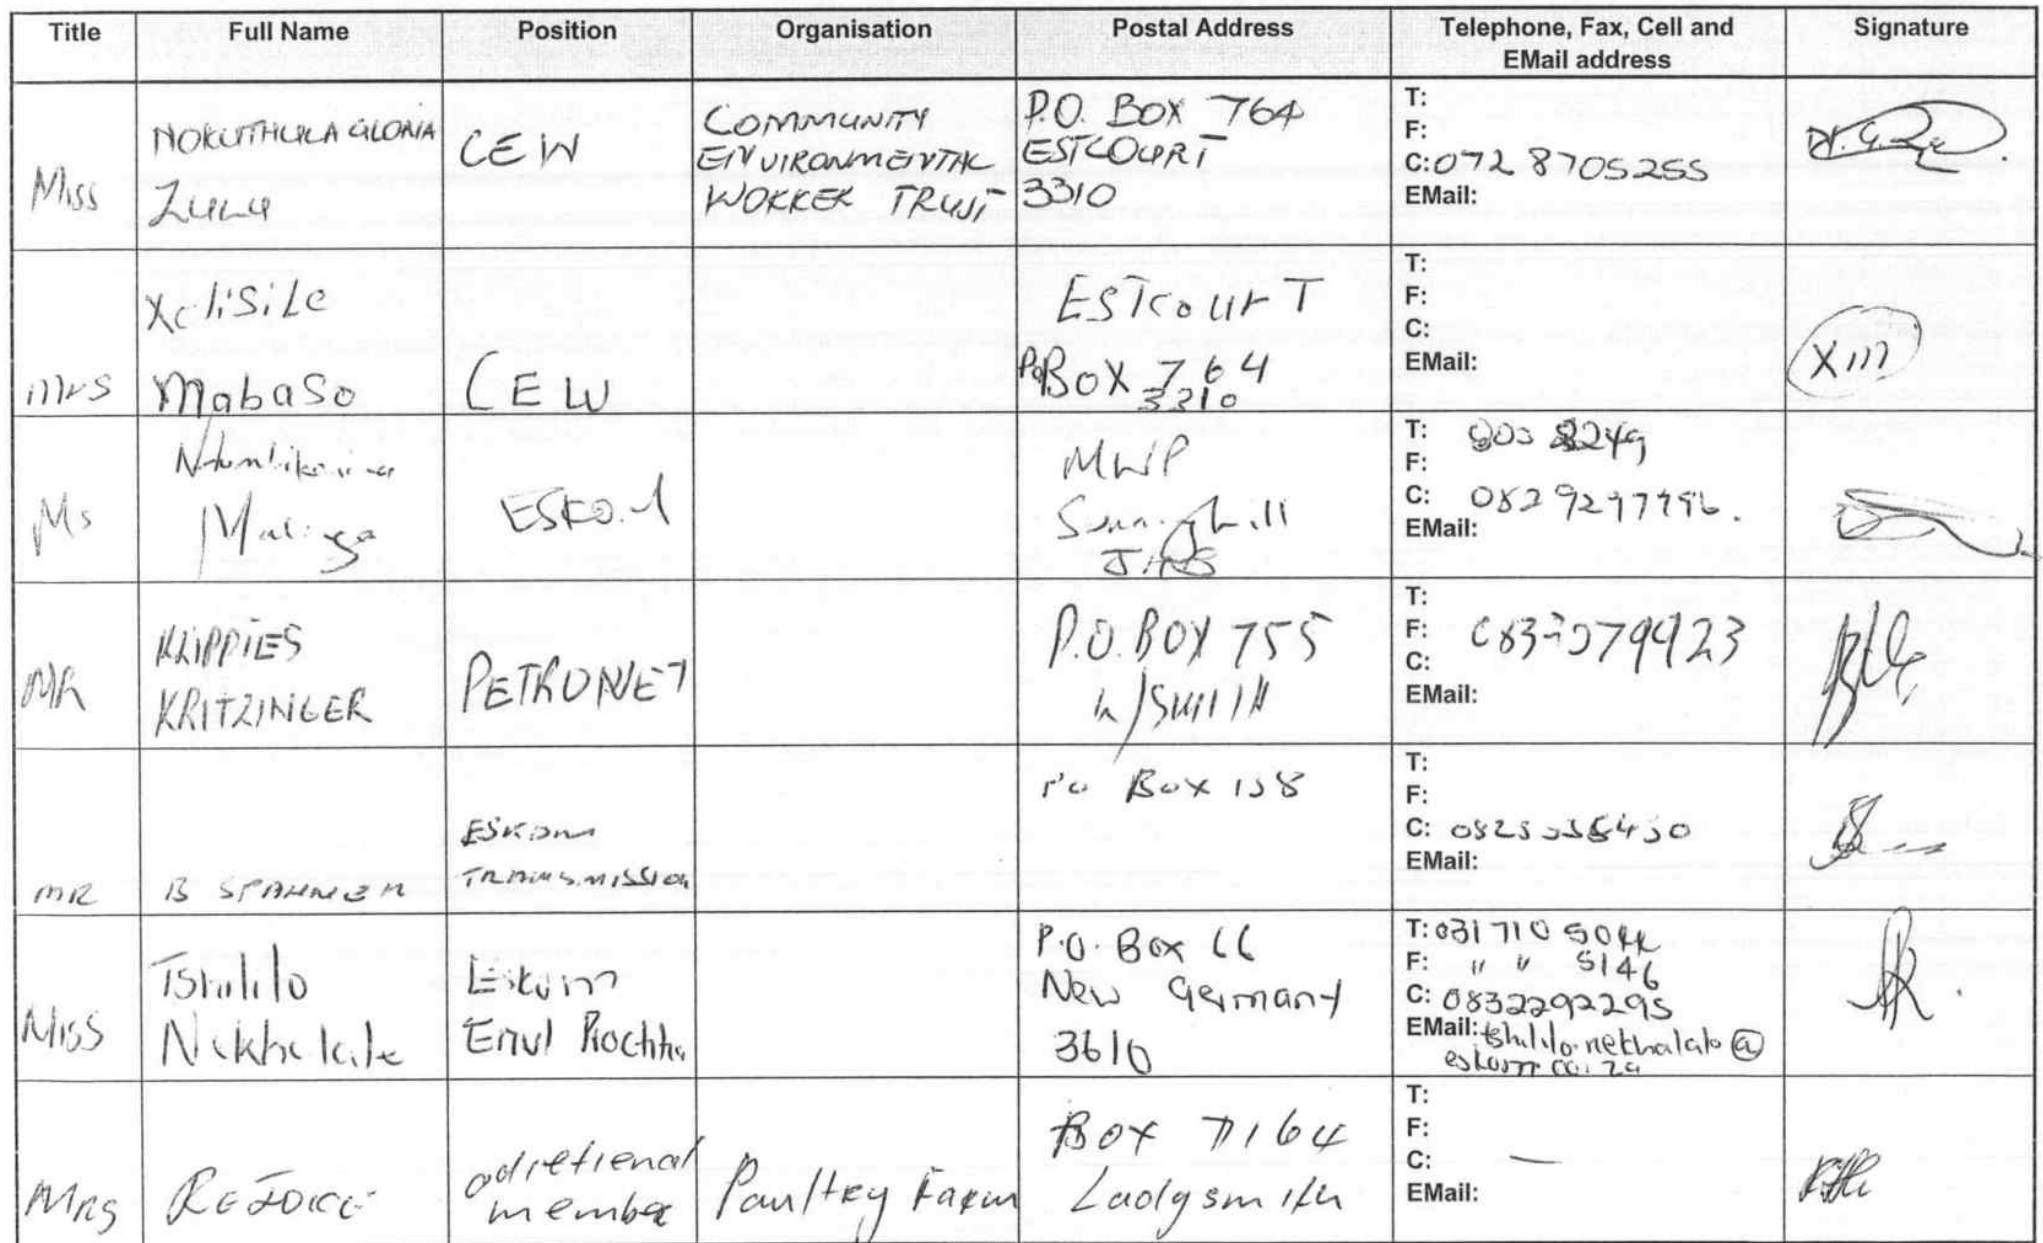 Title Full Name Position Organisation Postal Address Telephone, Fax, Cell and EMail address Signature
Miss
NOKUTHULA GLORIA
ZULU
CEW
COMMUNITY
ENVIRONMENTAL
WORKER TRUST
P.O. BOX 764
ESTCOURT
3310
T:
F:
C: 072 8705255
EMail:
Mrs
Xolisile
Mabaso
CEW
ESTcourT
P.O BOX 764
3310
T:
F:
C:
EMail:
XM
Ms
ESKOM
MWP
Sunninghill
JHB
T:
F:
C:
EMail:
MR
KLIPPIES
KRITZINGER
PETRONET
P.O. BOX 755
L/SMITH
T:
F:
C:
EMail:
MR
B SPANNER
ESKOM
TRANSMISSION
PO Box
T:
F:
C:
EMail:
Miss
Tshililo
Nekhalale
Eskom
Envl
P.O. Box 66
New Germany
3610
T: 031 710 5044
F: " " 5146
C: 0832292295
EMail: tshililo.nekhalale@
eskom.co.za
Mrs
REJOICE
adietienal
member
Paultry Farm
Box 7164
Ladysmith
T:
F:
C: —
EMail: